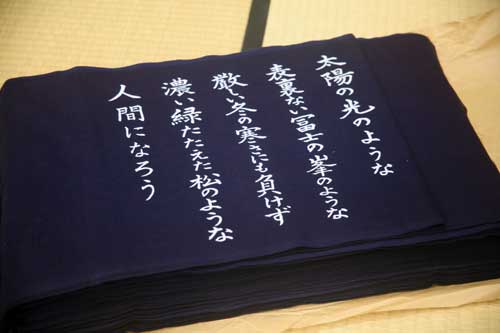 太陽の光のような
表裏ない富士の峯のような
厳しい冬の寒さにも負けず
濃い緑たたえた松のような
人間になろう